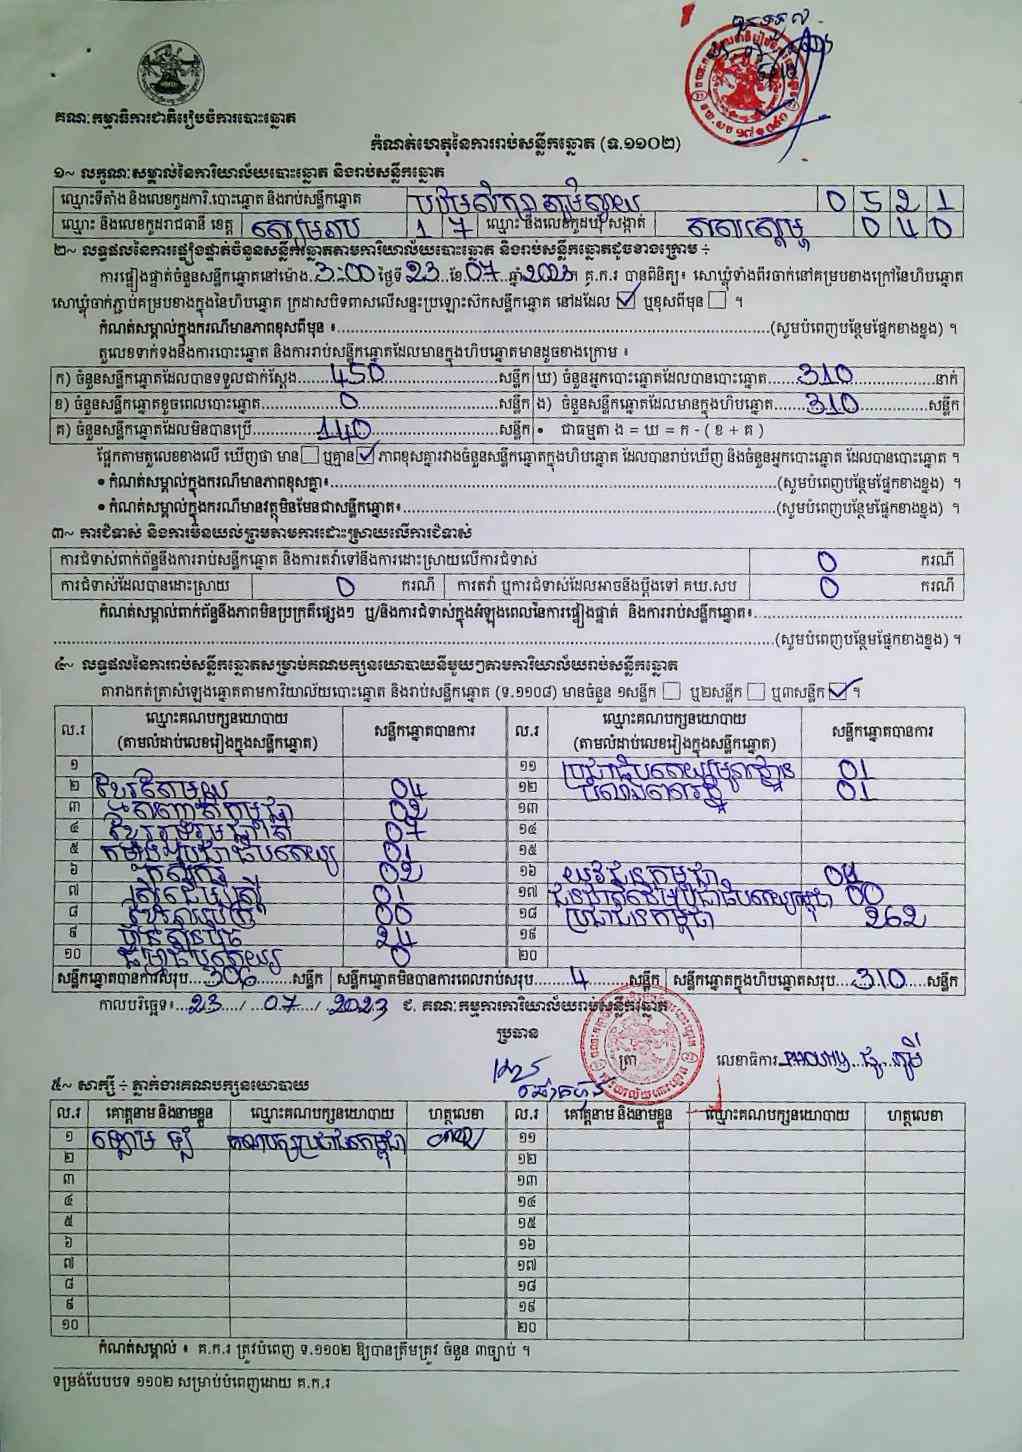 គណៈកម្មាធិការជាតិរៀបចំការបោះឆ្នោត
កំណត់ហេតុនៃការរាប់សន្លឹកឆ្នោត (ទ.១១០២)
១~ លក្ខណៈសម្គាល់នៃការិយាល័យបោះឆ្នោត និងរាប់សន្លឹកឆ្នោត
ឈ្មោះទីតាំង និងលេខកូដការិ.បោះឆ្នោត និងរាប់សន្លឹកឆ្នោត 0 5 2 1
ឈ្មោះ និងលេខកូដរាជធានី ខេត្ត សៀមរាប 1 7 ឈ្មោះ និងលេខកូដឃុំ សង្កាត់ 0 4 0
២~ លទ្ធផលនៃការផ្ទៀងផ្ទាត់ចំនួនសន្លឹកឆ្នោតតាមការិយាល័យបោះឆ្នោត និងរាប់សន្លឹកឆ្នោតដូចខាងក្រោម ÷
ការផ្ទៀងផ្ទាត់ចំនួនសន្លឹកឆ្នោតនៅម៉ោង 3:00 ថ្ងៃទី 23 ខែ 07 ឆ្នាំ 2023 គ.ក.រ បានពិនិត្យ៖ សោឃ្លុំទាំងពីរចាក់នៅគម្របខាងក្រៅនៃហិបឆ្នោត
សោឃ្លុំចាក់ភ្ជាប់គម្របខាងក្នុងនៃហិបឆ្នោត ក្រដាសបិទពាសលើសន្ទះប្រឡោះសិកសន្លឹកឆ្នោត នៅដដែល ☑ ឬខុសពីមុន ☐ ។
កំណត់សម្គាល់ក្នុងករណីមានភាពខុសពីមុន ៖ (សូមបំពេញបន្ថែមផ្នែកខាងខ្នង) ។
តួលេខទាក់ទងនឹងការបោះឆ្នោត និងការរាប់សន្លឹកឆ្នោតដែលមានក្នុងហិបឆ្នោតមានដូចខាងក្រោម ៖
ក) ចំនួនសន្លឹកឆ្នោតដែលបានទទួលជាក់ស្ដែង 450 សន្លឹក ឃ) ចំនួនអ្នកបោះឆ្នោតដែលបានបោះឆ្នោត 310 នាក់
ខ) ចំនួនសន្លឹកឆ្នោតខូចពេលបោះឆ្នោត 0 សន្លឹក ង) ចំនួនសន្លឹកឆ្នោតដែលមានក្នុងហិបឆ្នោត 310 សន្លឹក
គ) ចំនួនសន្លឹកឆ្នោតដែលមិនបានប្រើ 140 សន្លឹក • ជាធម្មតា ង = ឃ = ក - ( ខ + គ )
ផ្អែកតាមតួលេខខាងលើ ឃើញថា មាន ☐ ឬគ្មាន ☑ ភាពខុសគ្នារវាងចំនួនសន្លឹកឆ្នោតក្នុងហិបឆ្នោត ដែលបានរាប់ឃើញ និងចំនួនអ្នកបោះឆ្នោត ដែលបានបោះឆ្នោត ។
• កំណត់សម្គាល់ក្នុងករណីមានភាពខុសគ្នា៖ (សូមបំពេញបន្ថែមផ្នែកខាងខ្នង) ។
• កំណត់សម្គាល់ក្នុងករណីមានវត្ថុមិនមែនជាសន្លឹកឆ្នោត៖ (សូមបំពេញបន្ថែមផ្នែកខាងខ្នង) ។
៣~ ការជំទាស់ និងការមិនយល់ព្រមតាមការដោះស្រាយលើការជំទាស់
ការជំទាស់ពាក់ព័ន្ធនឹងការរាប់សន្លឹកឆ្នោត និងការតវ៉ាទៅនឹងការដោះស្រាយលើការជំទាស់ 0 ករណី
ការជំទាស់ដែលបានដោះស្រាយ 0 ករណី ការតវ៉ា ឬការជំទាស់ដែលអាចនឹងប្ដឹងទៅ គឃ.សប 0 ករណី
កំណត់សម្គាល់ពាក់ព័ន្ធនឹងភាពមិនប្រក្រតីផ្សេងៗ ឬ/និងការជំទាស់ក្នុងអំឡុងពេលនៃការផ្ទៀងផ្ទាត់ និងការរាប់សន្លឹកឆ្នោត៖
(សូមបំពេញបន្ថែមផ្នែកខាងខ្នង) ។
៤~ លទ្ធផលនៃការរាប់សន្លឹកឆ្នោតសម្រាប់គណបក្សនយោបាយនីមួយៗតាមការិយាល័យរាប់សន្លឹកឆ្នោត
តារាងកត់ត្រាសំឡេងឆ្នោតតាមការិយាល័យបោះឆ្នោត និងរាប់សន្លឹកឆ្នោត (ទ.១១០៨) មានចំនួន ១សន្លឹក ☐ ឬ២សន្លឹក ☐ ឬ៣សន្លឹក ☑ ។
ល.រ ឈ្មោះគណបក្សនយោបាយ (តាមលំដាប់លេខរៀងក្នុងសន្លឹកឆ្នោត) សន្លឹកឆ្នោតបានការ ល.រ ឈ្មោះគណបក្សនយោបាយ (តាមលំដាប់លេខរៀងក្នុងសន្លឹកឆ្នោត) សន្លឹកឆ្នោតបានការ
១ ១១ 01
២ 04 ១២ 01
៣ 02 ១៣
៤ 07 ១៤
៥ 01 ១៥
៦ 02 ១៦ យុវជនកម្ពុជា 04
៧ 01 ១៧ 00
៨ 00 ១៨ ប្រជាជនកម្ពុជា 262
៩ ហ៊្វុនស៊ិនប៉ិច 24 ១៩
១០ 0 ២០
សន្លឹកឆ្នោតបានការសរុប 306 សន្លឹក សន្លឹកឆ្នោតមិនបានការពេលរាប់សរុប 4 សន្លឹក សន្លឹកឆ្នោតក្នុងហិបឆ្នោតសរុប 310 សន្លឹក
កាលបរិច្ឆេទ៖ 23 / 07 / 2023 ជ. គណៈកម្មការការិយាល័យរាប់សន្លឹកឆ្នោត
ប្រធាន
ត្រា លេខាធិការ
៥~ សាក្សី ÷ ភ្នាក់ងារគណបក្សនយោបាយ
ល.រ គោត្តនាម និងនាមខ្លួន ឈ្មោះគណបក្សនយោបាយ ហត្ថលេខា ល.រ គោត្តនាម និងនាមខ្លួន ឈ្មោះគណបក្សនយោបាយ ហត្ថលេខា
១ គណបក្សប្រជាជនកម្ពុជា ១១
២ ១២
៣ ១៣
៤ ១៤
៥ ១៥
៦ ១៦
៧ ១៧
៨ ១៨
៩ ១៩
១០ ២០
កំណត់សម្គាល់ ៖ គ.ក.រ ត្រូវបំពេញ ទ.១១០២ ឱ្យបានត្រឹមត្រូវ ចំនួន ៣ច្បាប់ ។
ទម្រង់បែបបទ ១១០២ សម្រាប់បំពេញដោយ គ.ក.រ